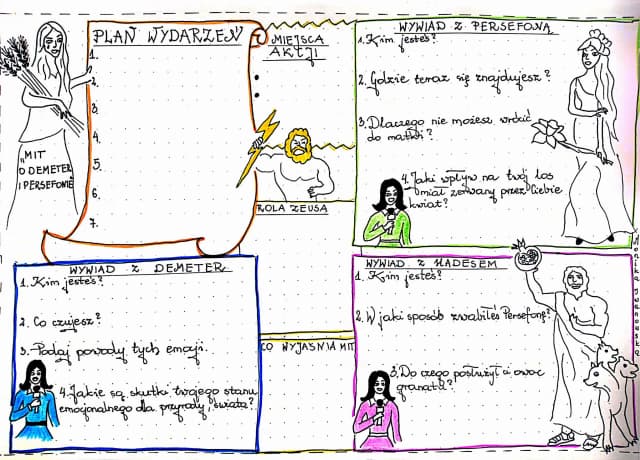 PLAN WYDARZEŃ
1.
2.
3.
4.
5.
6.
7.
„MIT
O DEMETER
I PERSEFONIE"
MIEJSCA
AKCJI
ROLA ZEUSA
CO WYJAŚNIA MIT
WYWIAD Z PERSEFONĄ
1. Kim jesteś?
2. Gdzie teraz się znajdujesz?
3. Dlaczego nie możesz wrócić
do matki?
4. Jaki wpływ na twój los
miał zerwany przez Ciebie
kwiat?
WYWIAD Z DEMETER
1. Kim jesteś?
2. Co czujesz?
3. Podaj powody tych emocji.
4. Jakie są skutki twojego stanu
emocjonalnego dla przyrody i świata?
WYWIAD Z HADESEM
1. Kim jesteś?
2. W jaki sposób zwabiłeś Persefonę?
3. Do czego posłużył ci owoc
granatu?